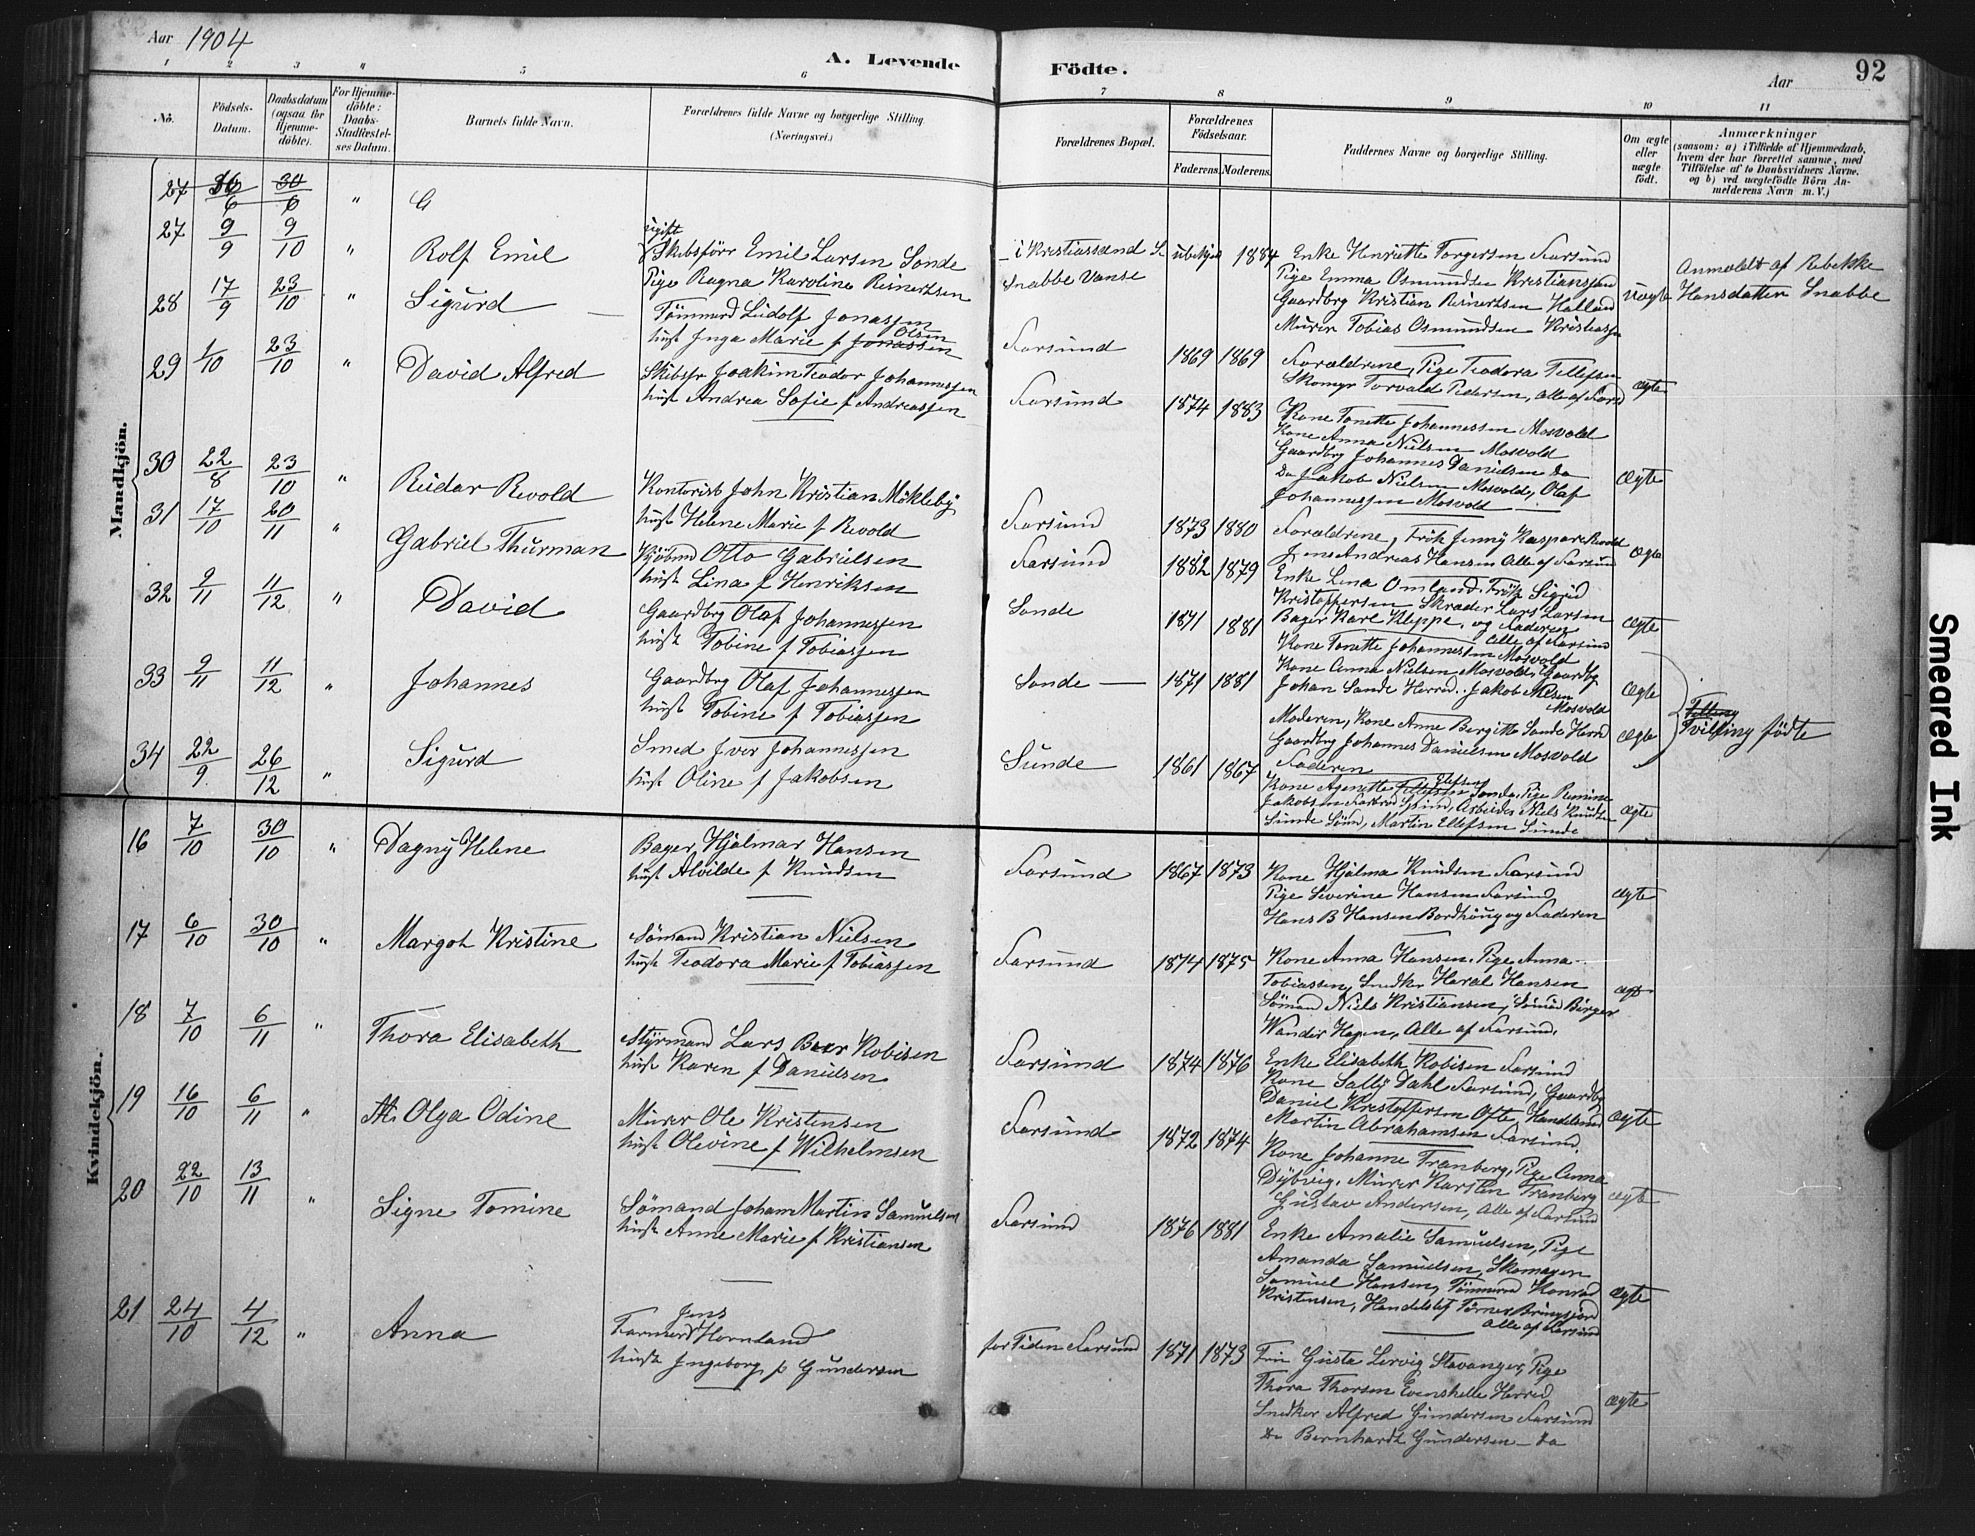 Aar 1904
A. Levende Födte.
Aar
92
1 2 3 4 5 6 7 8 9 10 11
No.
Födsels-Datum.
Daabsdatum (ogsaa for Hjemme-döbte).
For Hjemme-döbte: Daabs-Stadfæstel-ses Datum.
Barnets fulde Navn.
Forældrenes fulde Navne og borgerlige Stilling (Næringsvei.)
Forældrenes Bopæl.
Forældrenes Födselsaar.
Faderens. Moderens.
Faddernes Navne og borgerlige Stilling.
Om ægte eller uægte födt.
Anmærkninger (saasom: a) i Tilfælde af Hjemmedaab, hvem der har forrettet samme, med Tilföielse af to Daabsvidners Navne, og b) ved uægtefödte Börn Anmelderens Navn m. V.)
Mandkjön.
27 6 30/6 " G
27 9/9 9/10 " Rolf Emil
ugift
Skibsförr Emil Larsen Sonde
Pige Ragna Karoline Reinertsen
i Kristiassand S
Snabbe Vanse
ubekjed 1884
Enke Henriette Torgersen Farsund
Pige Emma Osmundsen Kristianssand
Gaardbrg Kristian Reinertsen Halland
Murer Tobias Osmundsen Kristianssa
uægte
Anmeldt af Rebekke
Hansdatter Snabbe
28 17/9 23/10 " Sigurd
Tömmerd Ludolf Jonassen
hust Inga Marie f Jonassen Olsen
Farsund 1869 1869
Forældrene, Pige Teodora Tellefsen
Skomgr Torvald Pedersen, Alle af Farsd
ægte
29 1/10 23/10 " David Alfred
Skibsfr Joakim Teodor Johannessen
hust Andrea Sofie f Andreassen
Farsund 1874 1883
Kone Tonette Johannessen Mosvold
Kone Anna Nielsen Mosvold
Gaardbg Johannes Danielsen Do
Do Jakob Nielsen Mosvold, Olaf
Johannessen Mosvold
Ægte
30 22/8 23/10 " Reidar Revold
Kontorist John Kristian Mökleby
hust Helene Marie f Revold
Farsund 1873 1880
Forældrene, Frök Jenny Kaspare Revold
Jens Andreas Hansen Alle af Farsund
Ægte
31 17/10 20/11 " Gabriel Thurman
Kjöbmd Otto Gabrielsen
hust Lina f Henriksen
Farsund 1882 1879
Enke Lina Omland. Frök Sigrid
Kristoffersen Skræder Lars Larsen
Bager Karl Kleppe, og Faderen
Alle af Farsund
Ægte
32 9/11 11/12 " David
Gaardbrg Olaf Johannessen
hust Tobine f Tobiassen
Sonde 1871 1881
Kone Tonette Johannessen Mosvold
Kone Anna Nielsen Mosvold, Gaardbg
Johan Sande Herred. Jakob Nielsen
Mosvold
Ægte
33 9/11 11/12 " Johannes
Gaardbrg Olaf Johannessen
hust Tobine f Tobiassen
Sonde 1871 1881
Moderen, Kone Anne Bergitte Sande Herrd
Gaardbrg Johannes Danielsen Mosvold
Faderen
Ægte
Tvilling födte
34 22/9 26/12 " Sigurd
Smed Iver Johannessen
hust Oline f Jakobsen
Sunde 1861 1867
Kone Agnette Tellefsen Sonde. Pige Remine
Jakobsen Farsund, Arbeider Niels Knudsen
Sunde Sönn, Martin Ellefsen Sunde
Ægte
Kvindekjön.
16 7/10 30/10 " Dagny Helene
Bager Hjalmar Hansen
hust Alvilde f Knudsen
Farsund 1867 1873
Kone Hjalma Knudsen Farsund
Pige Severine Hansen Farsund
Hans B Hansen Bordhoug og Faderen
Ægte
17 6/10 30/10 " Margot Kristine
Sömand Kristian Nielsen
hust Teodora Marie f Tobiassen
Farsund 1874 1875
Kone Anna Hansen. Pige Anna
Tobiassen, Snedkr Haral Hansen
Sömand Niels Kristiansen, Sömæd Börger
Wander Hagen, Alle af Farsund.
18 7/10 6/11 " Thora Elisabeth
Styrmand Lars Beer Robisen
hust Karen f Danielsen
Farsund 1874 1876
Enke Elisabeth Robisen Farsund
Kone Sally Dahl Farsund, Gaardbg
Daniel Kristoffersen Ofte, Handelsmd
Martin Abrahamsen Farsund.
Ægte
19 16/10 6/11 " Olga Odine
Murer Ole Kristensen
hust Olevine f Wilhelmsen
Farsund 1872 1874
Kone Johanne Tranberg, Pige Anna
Dybvig, Murer Karsten Tranberg
Gustav Andersen, Alle af Farsund
ægte
20 22/10 13/11 " Signe Tomine
Sömand Johan Martin Samuelsen
hust Anne Marie f Kristiansen
Farsund 1876 1881
Enke Amalie Samuelsen, Pige
Amanda Samuelsen, Skomager
Samuel Hansen, Tömmerd Konrad
Kristensen, Handelsbst Törner Bringsjord
Alle af Farsund
Ægte
21 24/10 4/12 " Anna
Farmer Jens Hornland
hust Ingeborg f Gundersen
for Tiden Farsund 1871 1873
Fru Gusta Lervig Stavanger, Pige
Thora Thorsen Evenshelle Herred
Snedker Alfred Gundersen Farsund
Do Bernhardt Gundersen – Do
Ægte
Smeared Ink